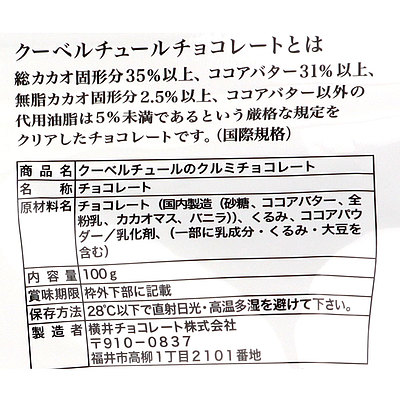 クーベルチュールチョコレートとは
総カカオ固形分35%以上、ココアバター31%以上、
無脂カカオ固形分2.5%以上、ココアバター以外の
代用油脂は5%未満であるという厳格な規定を
クリアしたチョコレートです。(国際規格)
商品名 クーベルチュールのクルミチョコレート
名称 チョコレート
原材料名 チョコレート(国内製造(砂糖、ココアバター、全
粉乳、カカオマス、バニラ))、くるみ、ココアパウ
ダー/乳化剤、(一部に乳成分・くるみ・大豆を
含む)
内容量 100g
賞味期限 枠外下部に記載
保存方法 28℃以下で直射日光・高温多湿を避けて下さい。
製造者 横井チョコレート株式会社
〒910-0837
福井市高柳1丁目2101番地